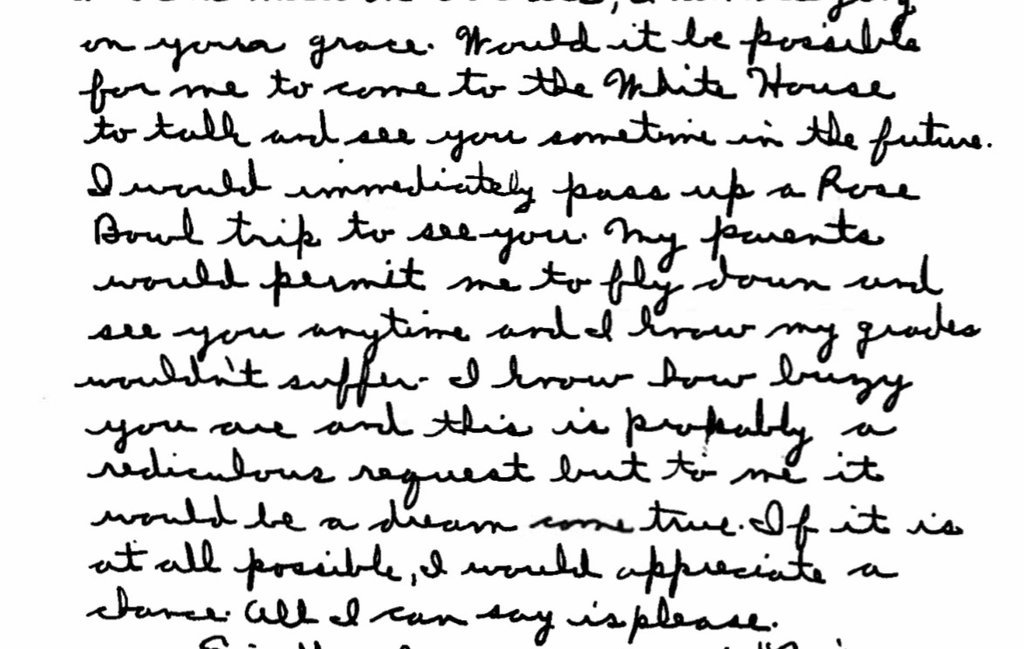 on your grace. Would it be possible
for me to come to the White House
to talk and see you sometime in the future.
I would immediately pass up a Rose
Bowl trip to see you. My parents
would permit me to fly down and
see you anytime and I know my grades
wouldn't suffer. I know how buzy
you are and this is probably a
rediculous request but to me it
would be a dream come true. If it is
at all possible, I would appreciate a
chance. All I can say is please.